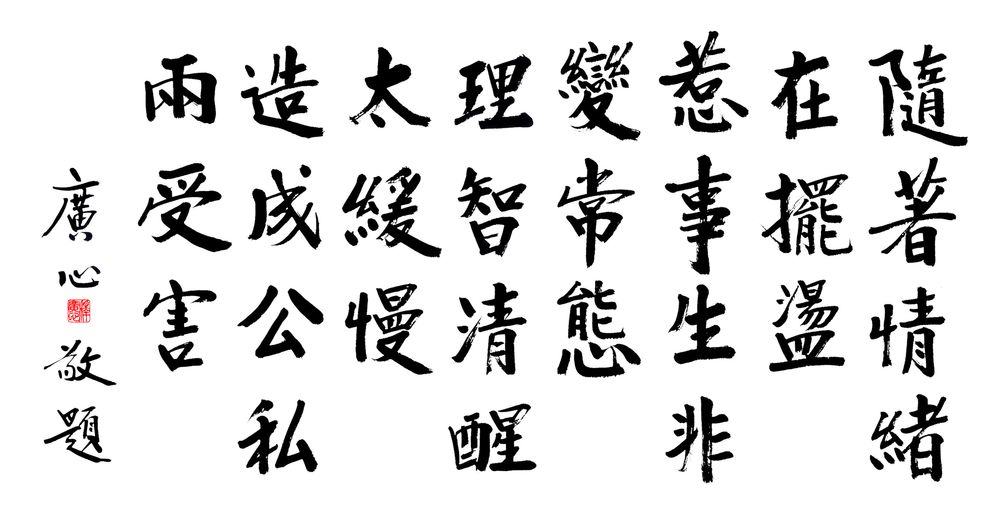 隨著情緒
在擺盪
惹事生非
變常態
理智清醒
太緩慢
造成公私
兩受害
廣心敬題